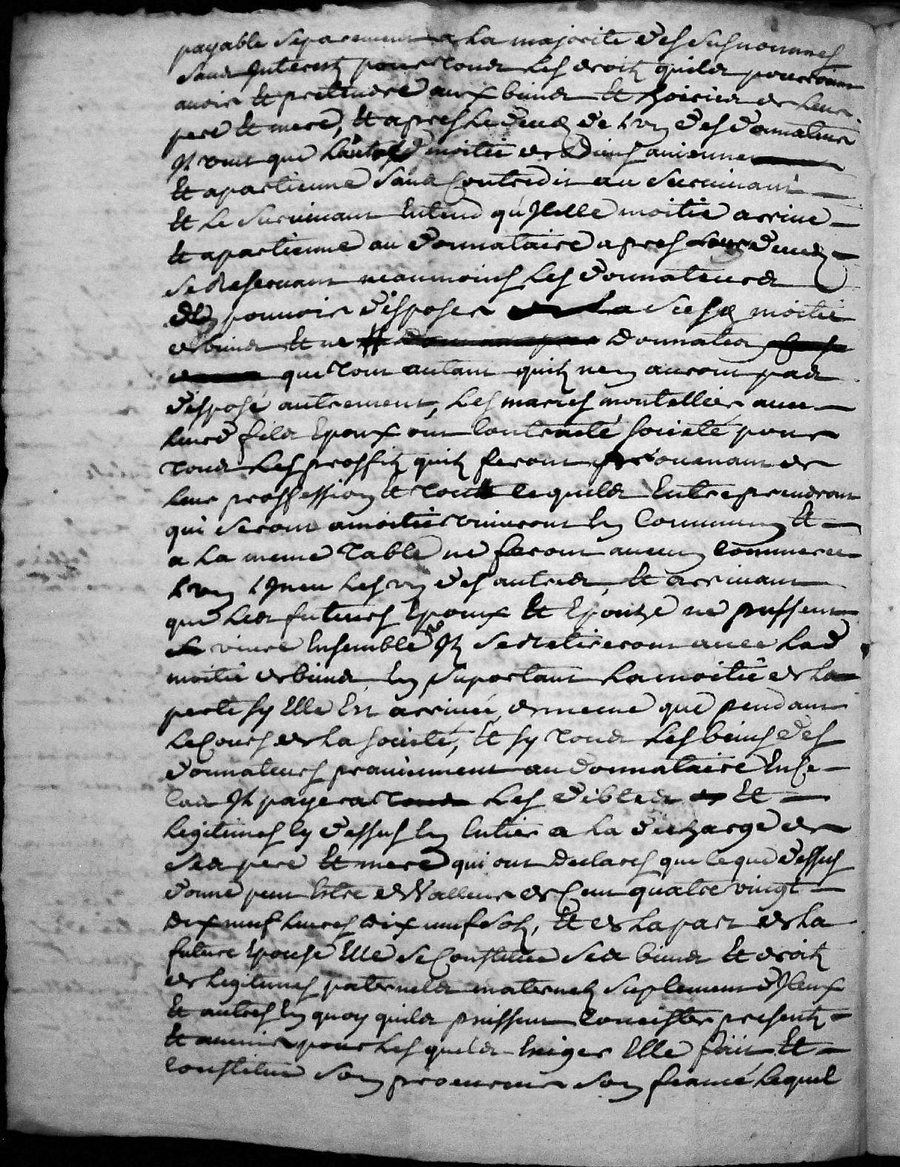 payable separement a la majorité des susnommes
sans Interest pour tous les droits quils pourroient
avoir Et pretendre aux biens Et hoiries de leurs
pere Et mere, Et apres le deces de l'un des donnateurs
Il veut que l'autre moitié de biens avienne
Et apartienne sans Contredit au survivant
Et le survivant Entend qu'Icelle moitié arrive
Et apartienne au donnataire apres leur deces
se Reservant neanmoins les donnateurs
de pouvoir disposer de la susde moitié
de biens Et ne donnation
que tout autant quils n'en auront pas
disposé autrement, Les maries montellier avec
leurd fils Epoux ont Contracté societé pour
tous les proffits quils feront provenant de
leur proffession Et tout ce quils Entreprendront
qui seront a moitié vivront En Commun Et
a la meme table ne feront aucun Commerce
l'un Inseu les uns des autres, Et arrivant
que les futeurs Epoux Et Epouze ne pussent
vivre Ensemble Ils se Retireront avec lad
moitié de biens En suportant la moitié de la
perte sy Elle Est arrivée, de meme que pendant
le Cours de la societé, Et sy tous les biens des
donnateurs proviennent au donnataire En ce
Cas Il payera les debtes Et
legitimes Cy dessus En Entier a la decharge de
ses pere Et mere qui ont declarés que ce que dessus
donné peut Estre de Valleur de Cent quatre vingt
dix neuf livres dix neuf sols, Et de la part de la
future Epouse Elle se Constitue ses biens Et droits
de legitimes paternels maternels suplement d'Iceux
Et autres En quoy quils puissent Concister presents
Et avenir pour lesquels Exiger Elle fait Et
Constitue son procureur son fiancé lequel